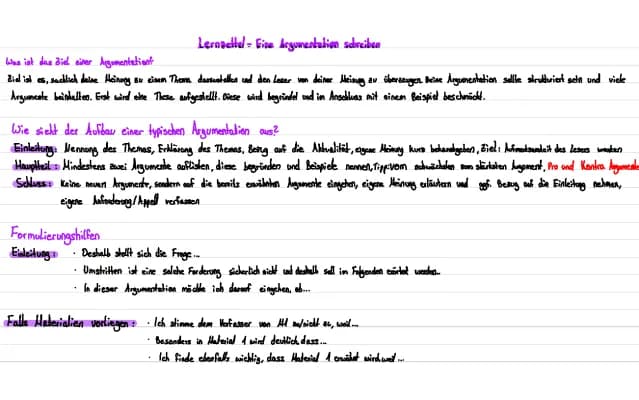 Lernzettel - Eine Argumentation schreiben
Was ist das Ziel einer Argumentation?
Ziel ist es, sachlich deine Meinung zu einem Thema darzustellen und den Leser von deiner Meinung zu überzeugen. Deine Argumentation sollte strukturiert sein und viele
Argumente beinhalten. Erst wird eine These aufgestellt. Diese wird begründet und im Anschluss mit einem Beispiel beschmückt.
Wie sieht der Aufbau einer typischen Argumentation aus?
Einleitung: Nennung des Themas, Erklärung des Themas, Bezug auf die Aktualität, eigene Meinung kurz bekanntgeben, Ziel: Aufmerksamkeit des Lesers wecken
Hauptteil: Mindestens zwei Argumente auflisten, diese begründen und Beispiele nennen, Tipp: vom schwächsten zum stärksten Argument, Pro und Kontra Argumente
Schluss: Keine neuen Argumente, sondern auf die bereits erwähnten Argumente eingehen, eigene Meinung erläutern und ggf. Bezug auf die Einleitung nehmen,
eigene Aufforderung/Appell verfassen
Formulierungshilfen
Einleitung: · Deshalb stellt sich die Frage...
· Umstritten ist eine solche Forderung sicherlich nicht und deshalb soll im Folgenden erörtert werden..
· In dieser Argumentation möchte ich darauf eingehen, ob...
Falls Materialien vorliegen: · Ich stimme dem Verfasser von M1 zu/nicht zu, weil...
· Besonders in Material 1 wird deutlich, dass...
· Ich finde ebenfalls wichtig, dass Material 1 erwähnt wird, weil...